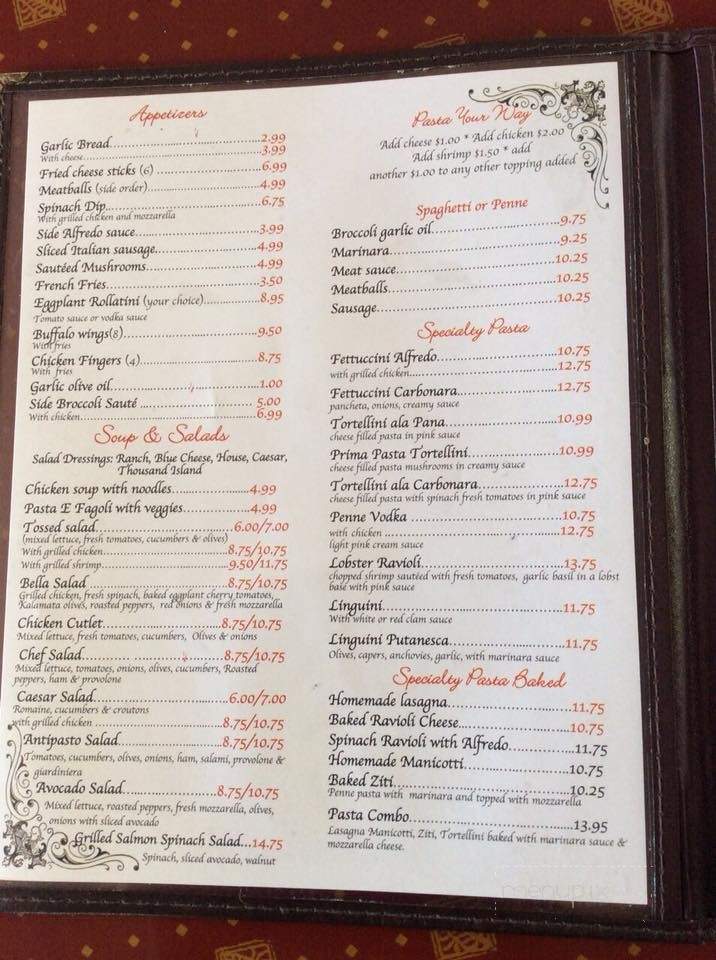 Appetizers
Garlic Bread 2.99
With cheese 3.99
Fried cheese sticks (6) 6.99
Meatballs (side order) 4.99
Spinach Dip 6.75
With grilled chicken and mozzarella
Side Alfredo sauce 3.99
Sliced Italian sausage 4.99
Sautéed Mushrooms 4.99
French Fries 3.50
Eggplant Rollatini (your choice) 8.95
Tomato sauce or vodka sauce
Buffalo wings(8) 9.50
With fries
Chicken Fingers (4) 8.75
With fries
Garlic olive oil 1.00
Side Broccoli Sauté 5.00
With chicken 6.99
Soup & Salads
Salad Dressings: Ranch, Blue Cheese, House, Caesar,
Thousand Island
Chicken soup with noodles 4.99
Pasta E Fagoli with veggies 4.99
Tossed salad 6.00/7.00
(mixed lettuce, fresh tomatoes, cucumbers & olives)
With grilled chicken 8.75/10.75
With grilled shrimp 9.50/11.75
Bella Salad 8.75/10.75
Grilled chicken, fresh spinach, baked eggplant cherry tomatoes,
Kalamata olives, roasted peppers, red onions & fresh mozzarella
Chicken Cutlet 8.75/10.75
Mixed lettuce, fresh tomatoes, cucumbers, Olives & onions
Chef Salad 8.75/10.75
Mixed lettuce, tomatoes, onions, olives, cucumbers, Roasted
peppers, ham & provolone
Caesar Salad 6.00/7.00
Romaine, cucumbers & croutons
with grilled chicken 8.75/10.75
Antipasto Salad 8.75/10.75
Tomatoes, cucumbers, olives, onions, ham, salami, provolone &
giardiniera
Avocado Salad 8.75/10.75
Mixed lettuce, roasted peppers, fresh mozzarella, olives,
onions with sliced avocado
Grilled Salmon Spinach Salad 14.75
Spinach, sliced avocado, walnut
Pasta Your Way
Add cheese $1.00 * Add chicken $2.00
Add shrimp $1.50 * add
another $1.00 to any other topping added
Spaghetti or Penne
Broccoli garlic oil 9.75
Marinara 9.25
Meat sauce 10.25
Meatballs 10.25
Sausage 10.25
Specialty Pasta
Fettuccini Alfredo 10.75
with grilled chicken 12.75
Fettuccini Carbonara 12.75
pancheta, onions, creamy sauce
Tortellini ala Pana 10.99
cheese filled pasta in pink sauce
Prima Pasta Tortellini 10.99
cheese filled pasta mushrooms in creamy sauce
Tortellini ala Carbonara 12.75
cheese filled pasta with spinach fresh tomatoes in pink sauce
Penne Vodka 10.75
with chicken 12.75
light pink cream sauce
Lobster Ravioli 13.75
chopped shrimp sautéed with fresh tomatoes, garlic basil in a lobst
base with pink sauce
Linguini 11.75
With white or red clam sauce
Linguini Putanesca 11.75
Olives, capers, anchovies, garlic, with marinara sauce
Specialty Pasta Baked
Homemade lasagna 11.75
Baked Ravioli Cheese 10.75
Spinach Ravioli with Alfredo 11.75
Homemade Manicotti 10.75
Baked Ziti 10.25
Penne pasta with marinara and topped with mozzarella
Pasta Combo 13.95
Lasagna Manicotti, Ziti, Tortellini baked with marinara sauce &
mozzarella cheese.